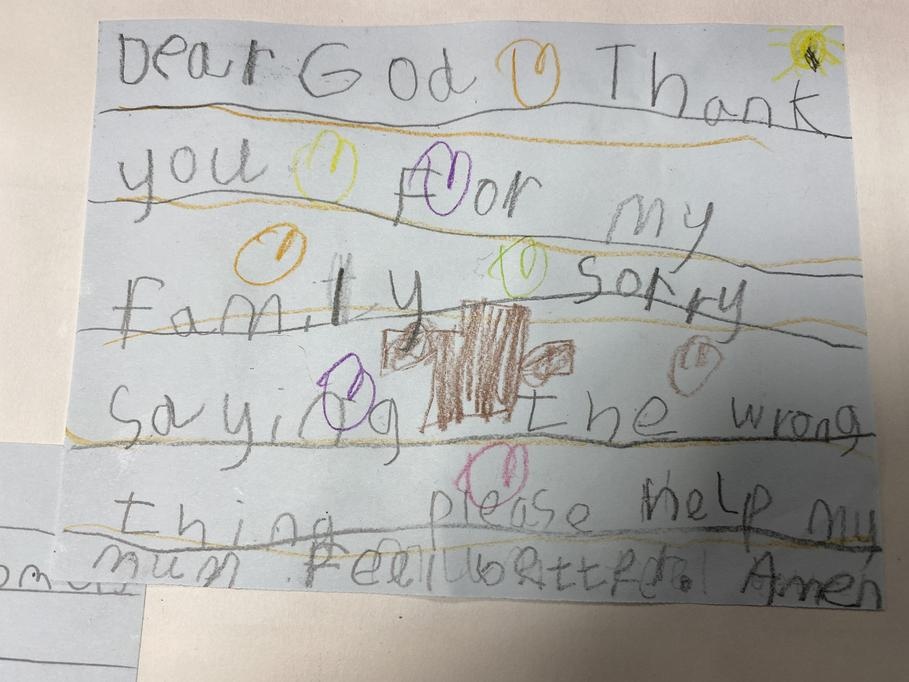 Dear God Thank
you for my
family sorry
saying the wrong
thing please help my
mum Feel Amen